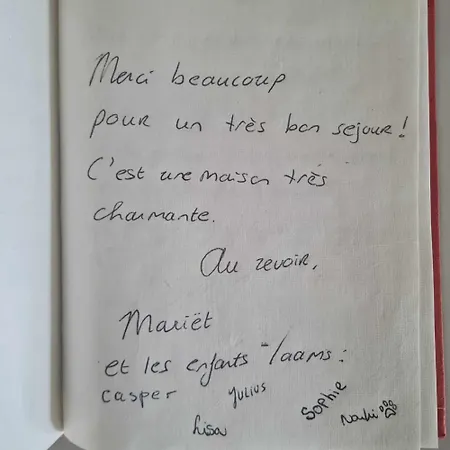 Merci beaucoup
pour un très bon sejour!
C'est une maison très
charmante.
Au revoir,
Mariët
et les enfants :
casper Julius Sophie
Lisa